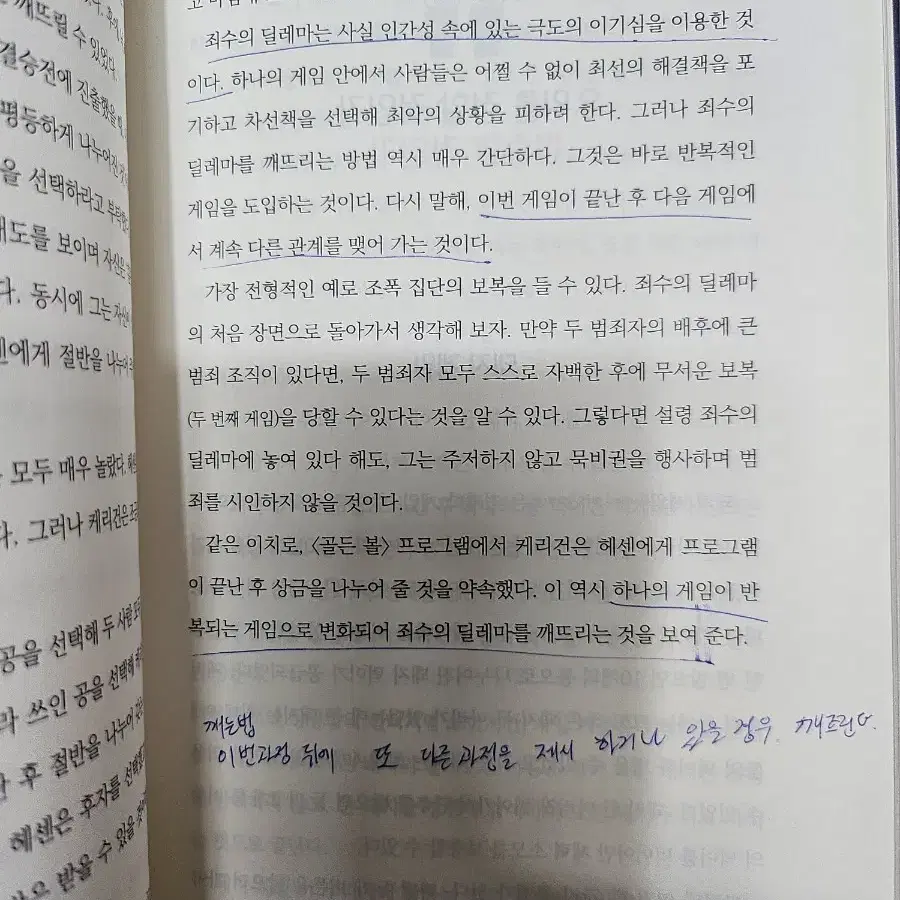 깨뜨릴 수 있었다.
결승전에 진출했을
평등하게 나누어진
을 선택하라고 부탁한
태도를 보이며 자신은
다. 동시에 그는 자신이
센에게 절반을 나누어
모두 매우 놀랐다.
다. 그러나 케리건은
공을 선택해 두 사람 모두
라 쓰인 공을 선택해
난 후 절반을 나누어
헤센은 후자를 선택했
상으로 받을 수 있을
죄수의 딜레마는 사실 인간성 속에 있는 극도의 이기심을 이용한 것
이다. 하나의 게임 안에서 사람들은 어쩔 수 없이 최선의 해결책을 포
기하고 차선책을 선택해 최악의 상황을 피하려 한다. 그러나 죄수의
딜레마를 깨뜨리는 방법 역시 매우 간단하다. 그것은 바로 반복적인
게임을 도입하는 것이다. 다시 말해, 이번 게임이 끝난 후 다음 게임에
서 계속 다른 관계를 맺어 가는 것이다.
가장 전형적인 예로 조폭 집단의 보복을 들 수 있다. 죄수의 딜레마
의 처음 장면으로 돌아가서 생각해 보자. 만약 두 범죄자의 배후에 큰
범죄 조직이 있다면, 두 범죄자 모두 스스로 자백한 후에 무서운 보복
(두 번째 게임)을 당할 수 있다는 것을 알 수 있다. 그렇다면 설령 죄수의
딜레마에 놓여 있다 해도, 그는 주저하지 않고 묵비권을 행사하며 범
죄를 시인하지 않을 것이다.
같은 이치로, 〈골든 볼〉 프로그램에서 케리건은 헤센에게 프로그램
이 끝난 후 상금을 나누어 줄 것을 약속했다. 이 역시 하나의 게임이 반
복되는 게임으로 변화되어 죄수의 딜레마를 깨뜨리는 것을 보여 준다.
깨는법
이번과정 뒤에 또 다른 과정을 제시 하거나 있을 경우 깨트린다.